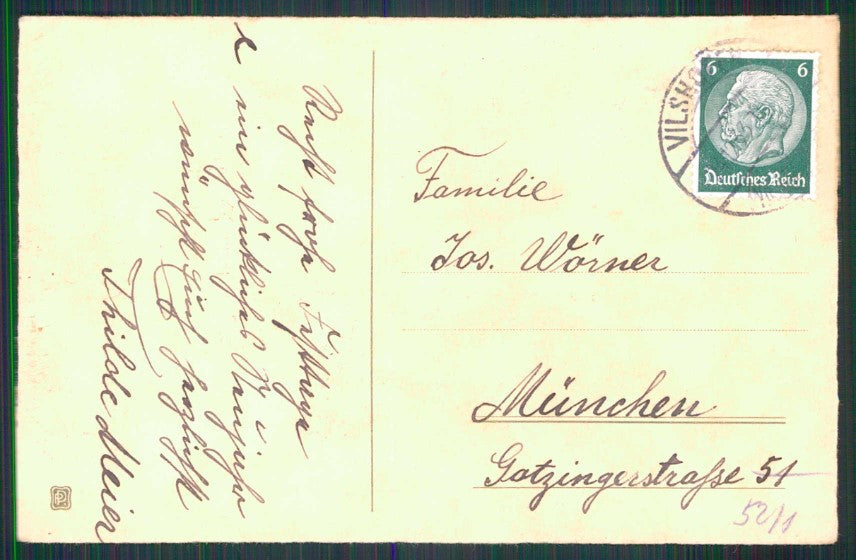 Recht frohe Festtage
u. ein glückliches Neujahr
wünscht Euch herzlichst
Thilde Meier
VILSHO
6 6
Deutsches Reich
Familie
Jos. Wörner
München
Gotzingerstraße 51
52/1